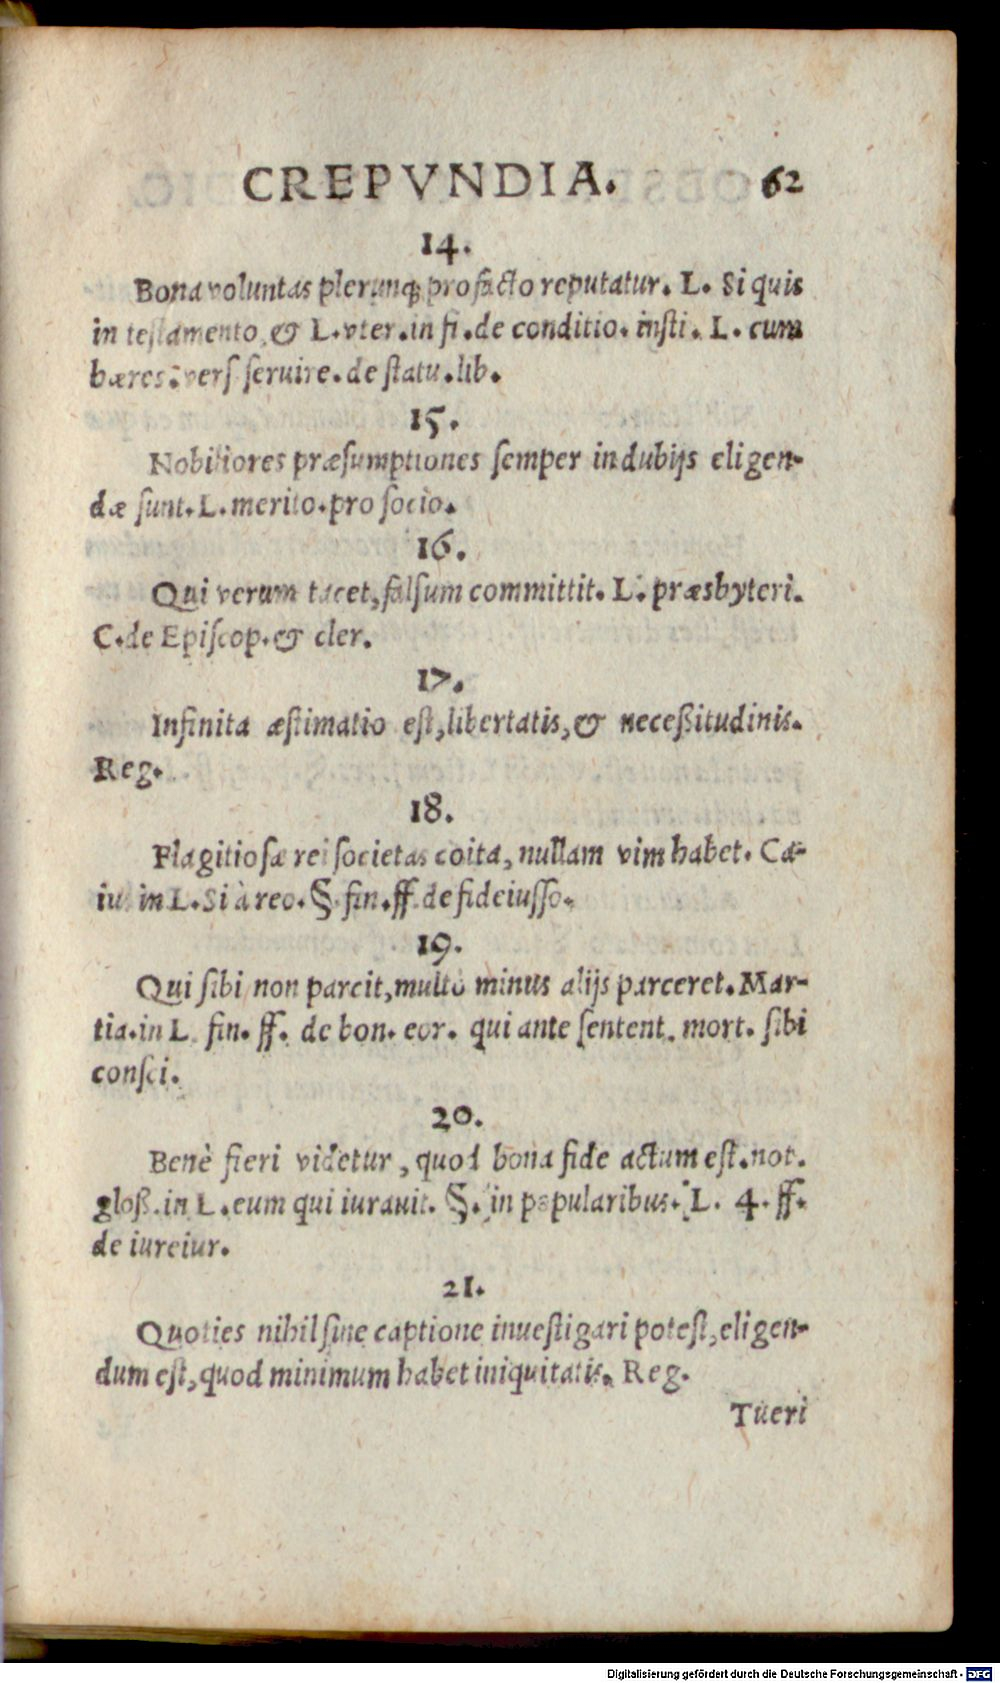 CREPVNDIA. 62
14.
Bona voluntas plerunq; pro facto reputatur. L. Si quis
in testamento. & L. vter. in fi. de conditio. insti. L. cum
hæres. vers. seruire. de statu. lib.
15.
Nobiliores præsumptiones semper in dubijs eligen-
dæ sunt. L. merito. pro socio.
16.
Qui verum tacet, falsum committit. L. præsbyteri.
C. de Episcop. & cler.
17.
Infinita æstimatio est, libertatis, & neceßitudinis.
Reg.
18.
Flagitiosæ rei societas coita, nullam vim habet. Ca-
iu. in L. Si à reo. §. fin. ff. de fideiusso.
19.
Qui sibi non parcit, multò minus alijs parceret. Mar-
tia. in L. fin. ff. de bon. eor. qui ante sentent. mort. sibi
consci.
20.
Benè fieri videtur, quod bona fide actum est. not.
gloß. in L. eum qui iurauit. §. in popularibus. L. 4. ff.
de iureiur.
21.
Quoties nihil sine captione inuestigari potest, eligen-
dum est, quod minimum habet iniquitatis. Reg.
Tueri
Digitalisierung gefördert durch die Deutsche Forschungsgemeinschaft - DFG